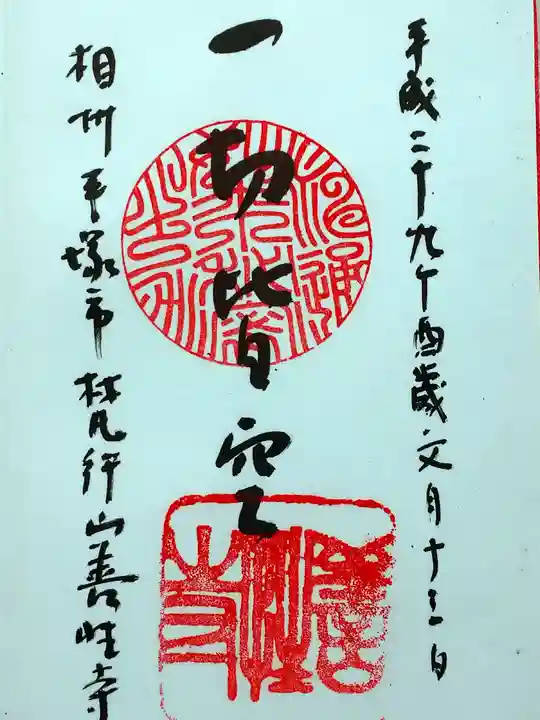 平成二十九丁酉歳文月十三日
一切皆空
相州平塚市梵行山善性寺
善性寺